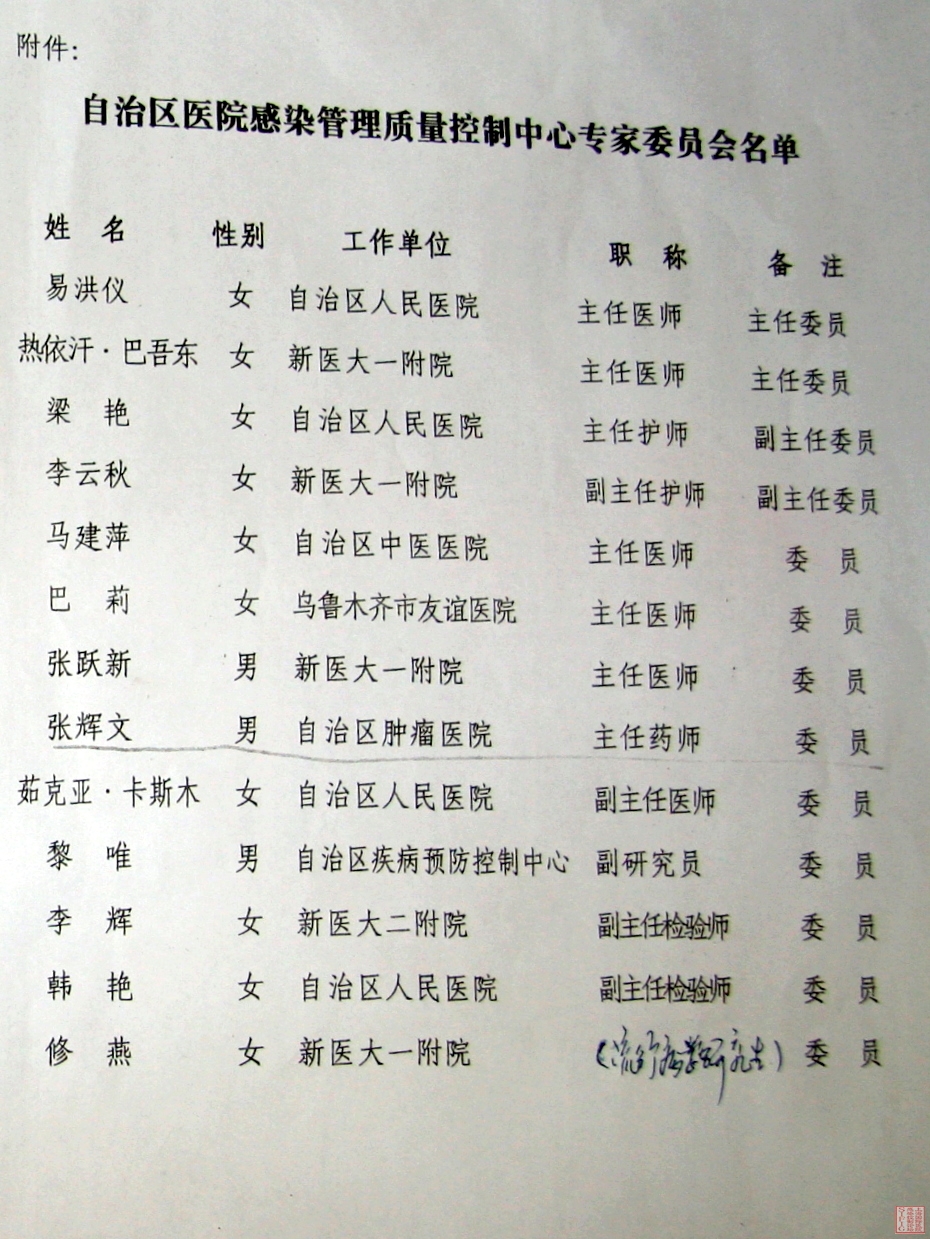 附件:
自治区医院感染管理质量控制中心专家委员会名单
姓 名 性别 工作单位 职 称 备 注
易洪仪 女 自治区人民医院 主任医师 主任委员
热依汗·巴吾东 女 新医大一附院 主任医师 主任委员
梁 艳 女 自治区人民医院 主任护师 副主任委员
李云秋 女 新医大一附院 副主任护师 副主任委员
马建萍 女 自治区中医医院 主任医师 委 员
巴 莉 女 乌鲁木齐市友谊医院 主任医师 委 员
张跃新 男 新医大一附院 主任医师 委 员
张辉文 男 自治区肿瘤医院 主任药师 委 员
茹克亚·卡斯木 女 自治区人民医院 副主任医师 委 员
黎 唯 男 自治区疾病预防控制中心 副研究员 委 员
李 辉 女 新医大二附院 副主任检验师 委 员
韩 艳 女 自治区人民医院 副主任检验师 委 员
修 燕 女 新医大一附院 (流行病学研究生) 委 员